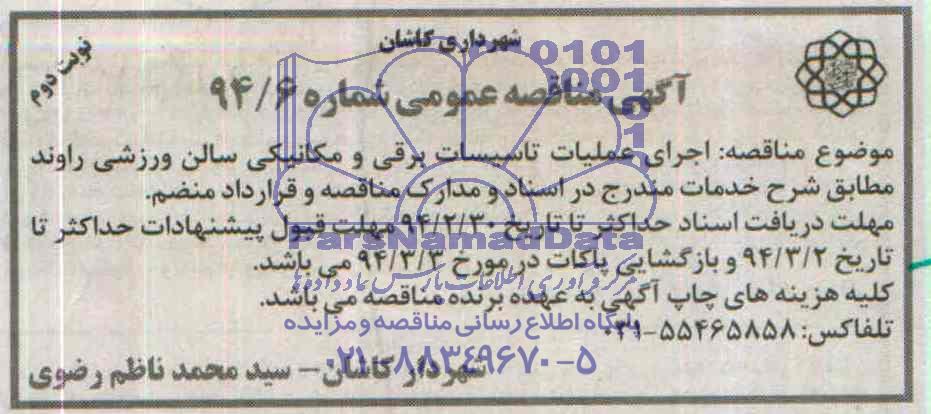 شهرداری کاشان
نوبت دوم
آگهی مناقصه عمومی شماره ۹۴/۶
موضوع مناقصه: اجرای عملیات تاسیسات برقی و مکانیکی سالن ورزشی راوند
مطابق شرح خدمات مندرج در اسناد و مدارک مناقصه و قرارداد منضم.
مهلت دریافت اسناد حداکثر تا تاریخ ۹۴/۲/۳۰ مهلت قبول پیشنهادات حداکثر تا
تاریخ ۹۴/۳/۲ و بازگشایی پاکات در مورخ ۹۴/۳/۳ می باشد.
کلیه هزینه های چاپ آگهی به عهده برنده مناقصه می باشد.
تلفاکس: ۵۵۴۶۵۸۵۸-۰۳۱
شهردار کاشان – سید محمد ناظم رضوی
0101
0001
ParsNamadData
مرکز فرآوری اطلاعات پارس نماد داده ها
پایگاه اطلاع رسانی مناقصه و مزایده
۰۲۱-۸۸۳۴۹۶۷۰-۵